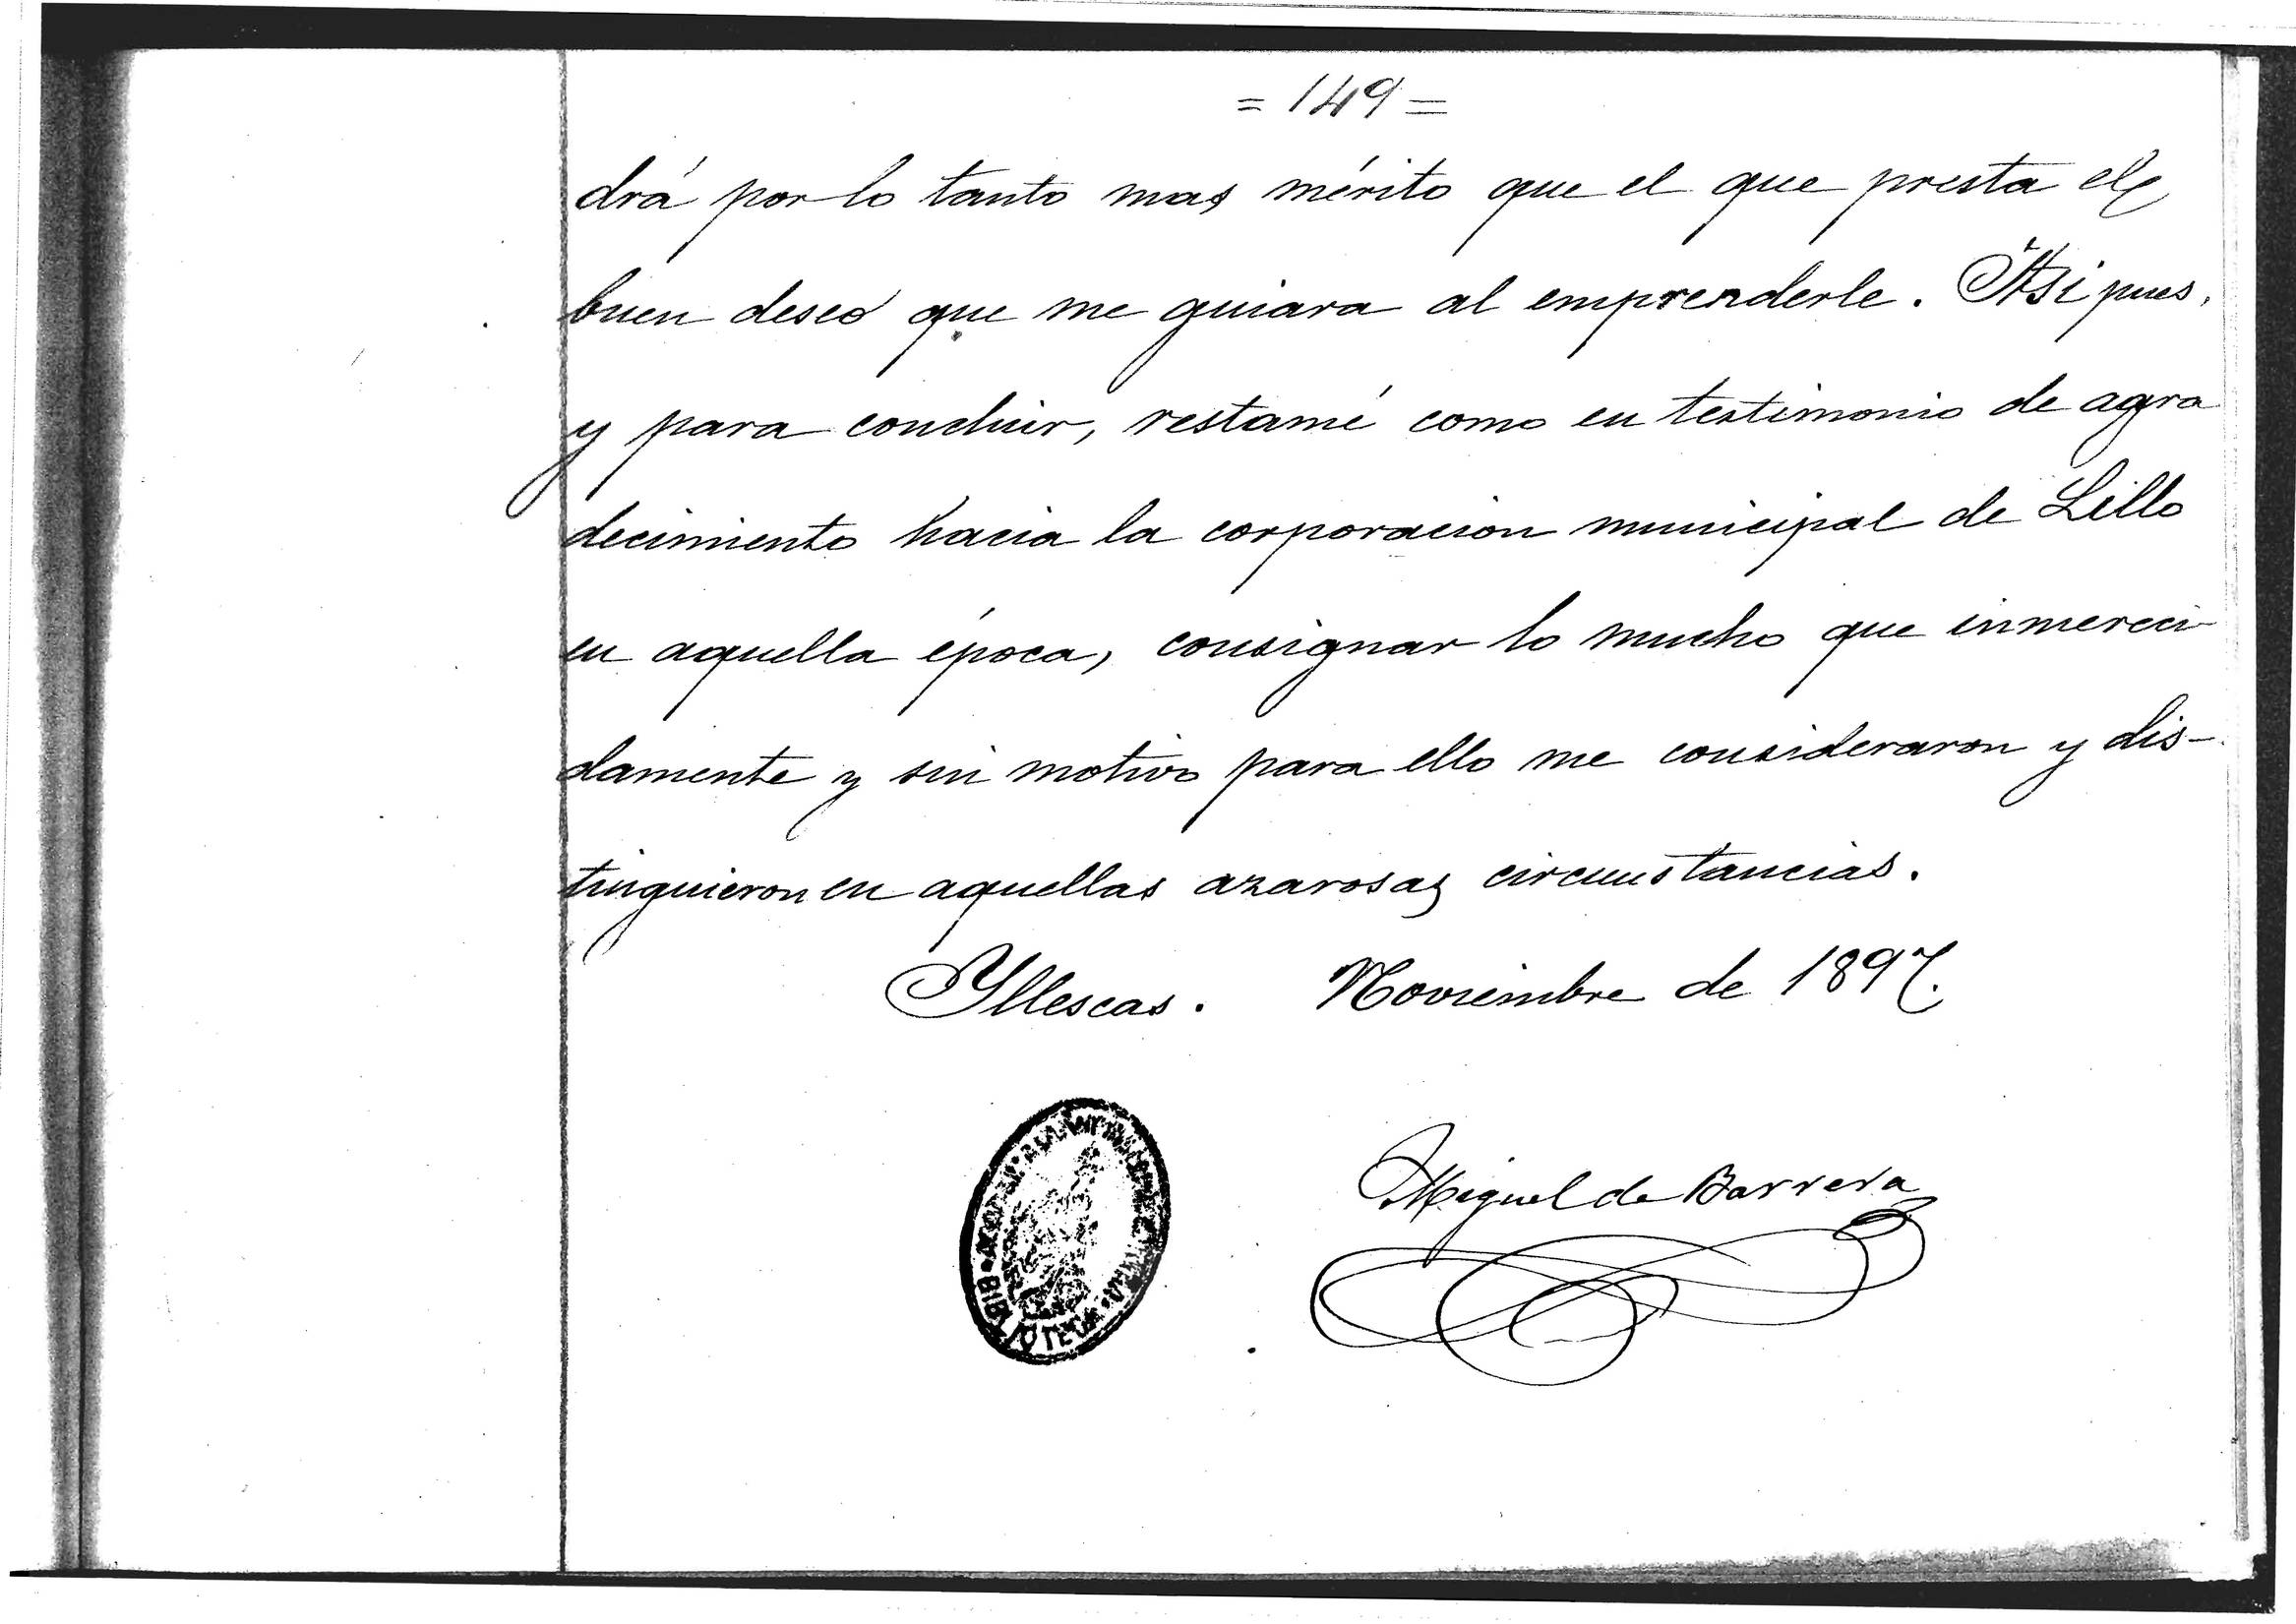 = 149 =
drá por lo tanto mas mérito que el que presta el
buen deseo que me guiara al emprenderle. Asi pues,
y para concluir, restamé como en testimonio de agra
decimiento hacia la corporacion municipal de Lillo
en aquella época, consignar lo mucho que inmereci
damente y sin motivo para ello me consideraron y dis-
tinguieron en aquellas azarosas circunstancias.
Yllescas. Noviembre de 1897.
Miguel de Barrera
BIBLIOTECA